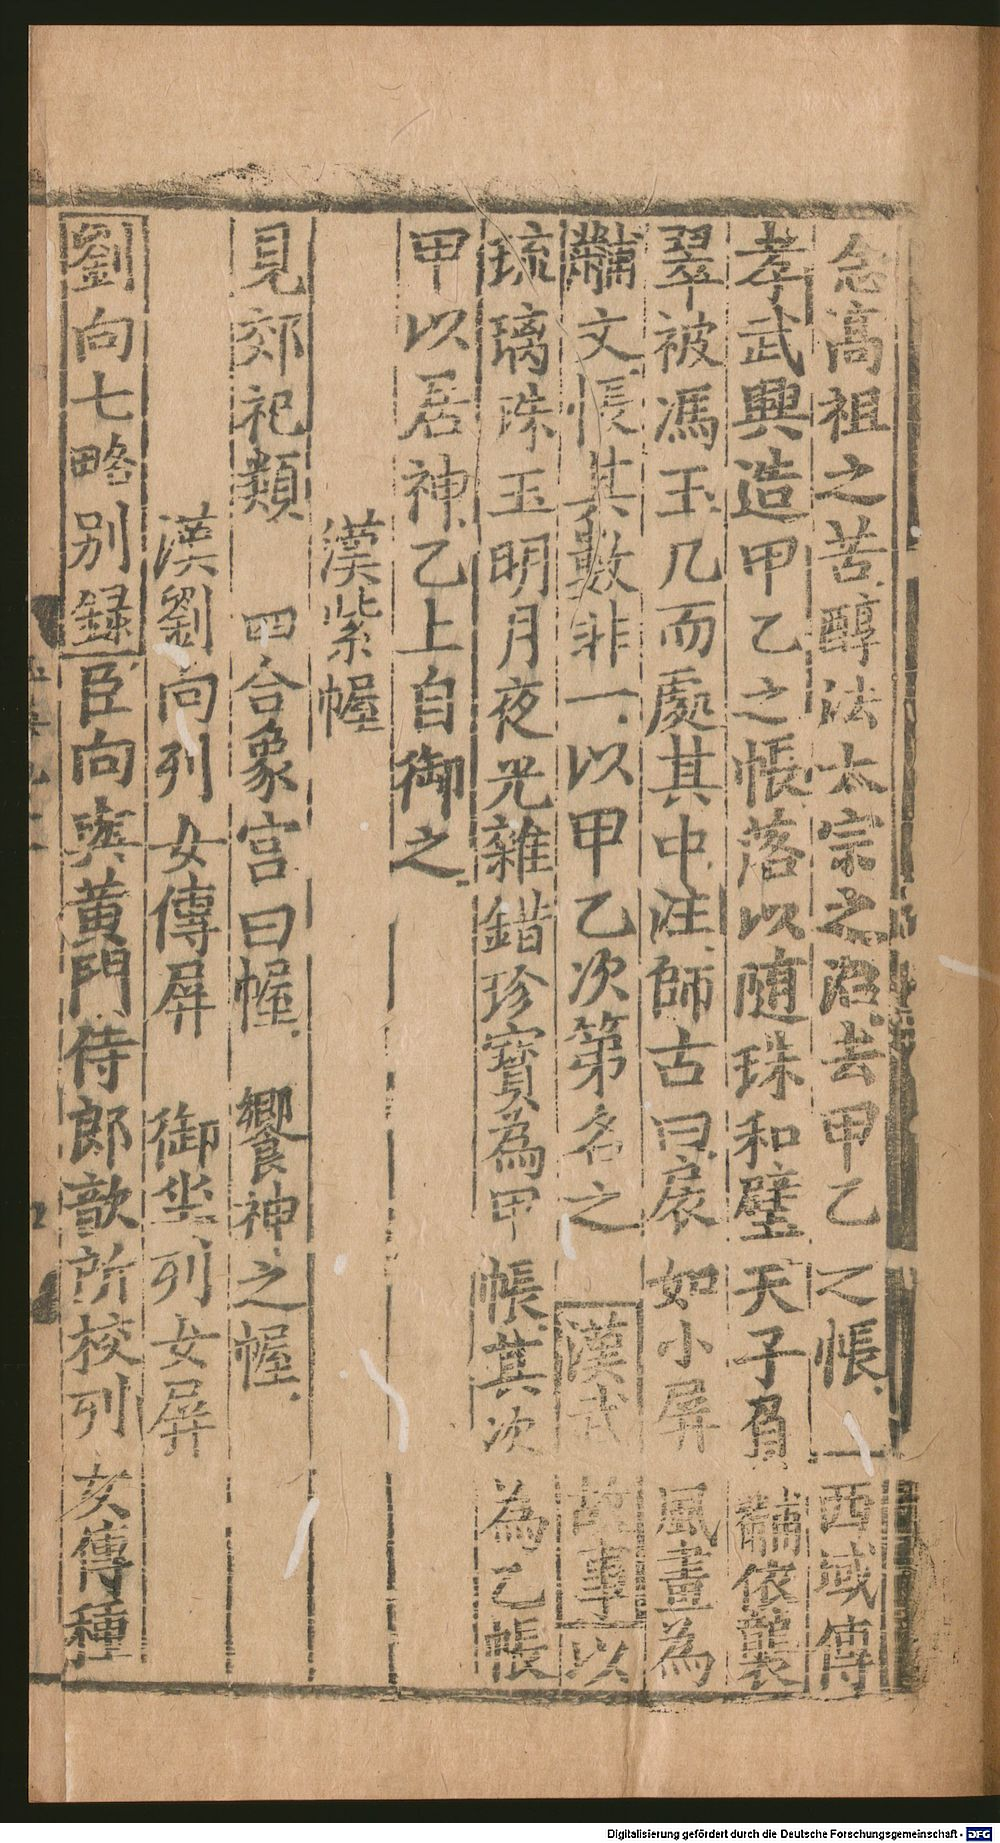 念高祖之苦醇法太宗之治去甲乙之帳西域傳
孝武興造甲乙之帳落以随珠和璧天子負黼依襲
翠被馮玉几而處其中注師古曰扆如小屏風畫為
黼文帳其數非一以甲乙次第名之漢武故事以
琉璃珠玉明月夜光雜錯珍寶為甲帳其次為乙帳
甲以居神乙上自御之
漢紫幄
見郊祀類 四合象宫曰幄 饗神之幄
漢劉向列女傳屏 御坐列女屏
劉向七略别録臣向與黄門侍郎歆所校列女傳種
Digitalisierung gefördert durch die Deutsche Forschungsgemeinschaft - DFG